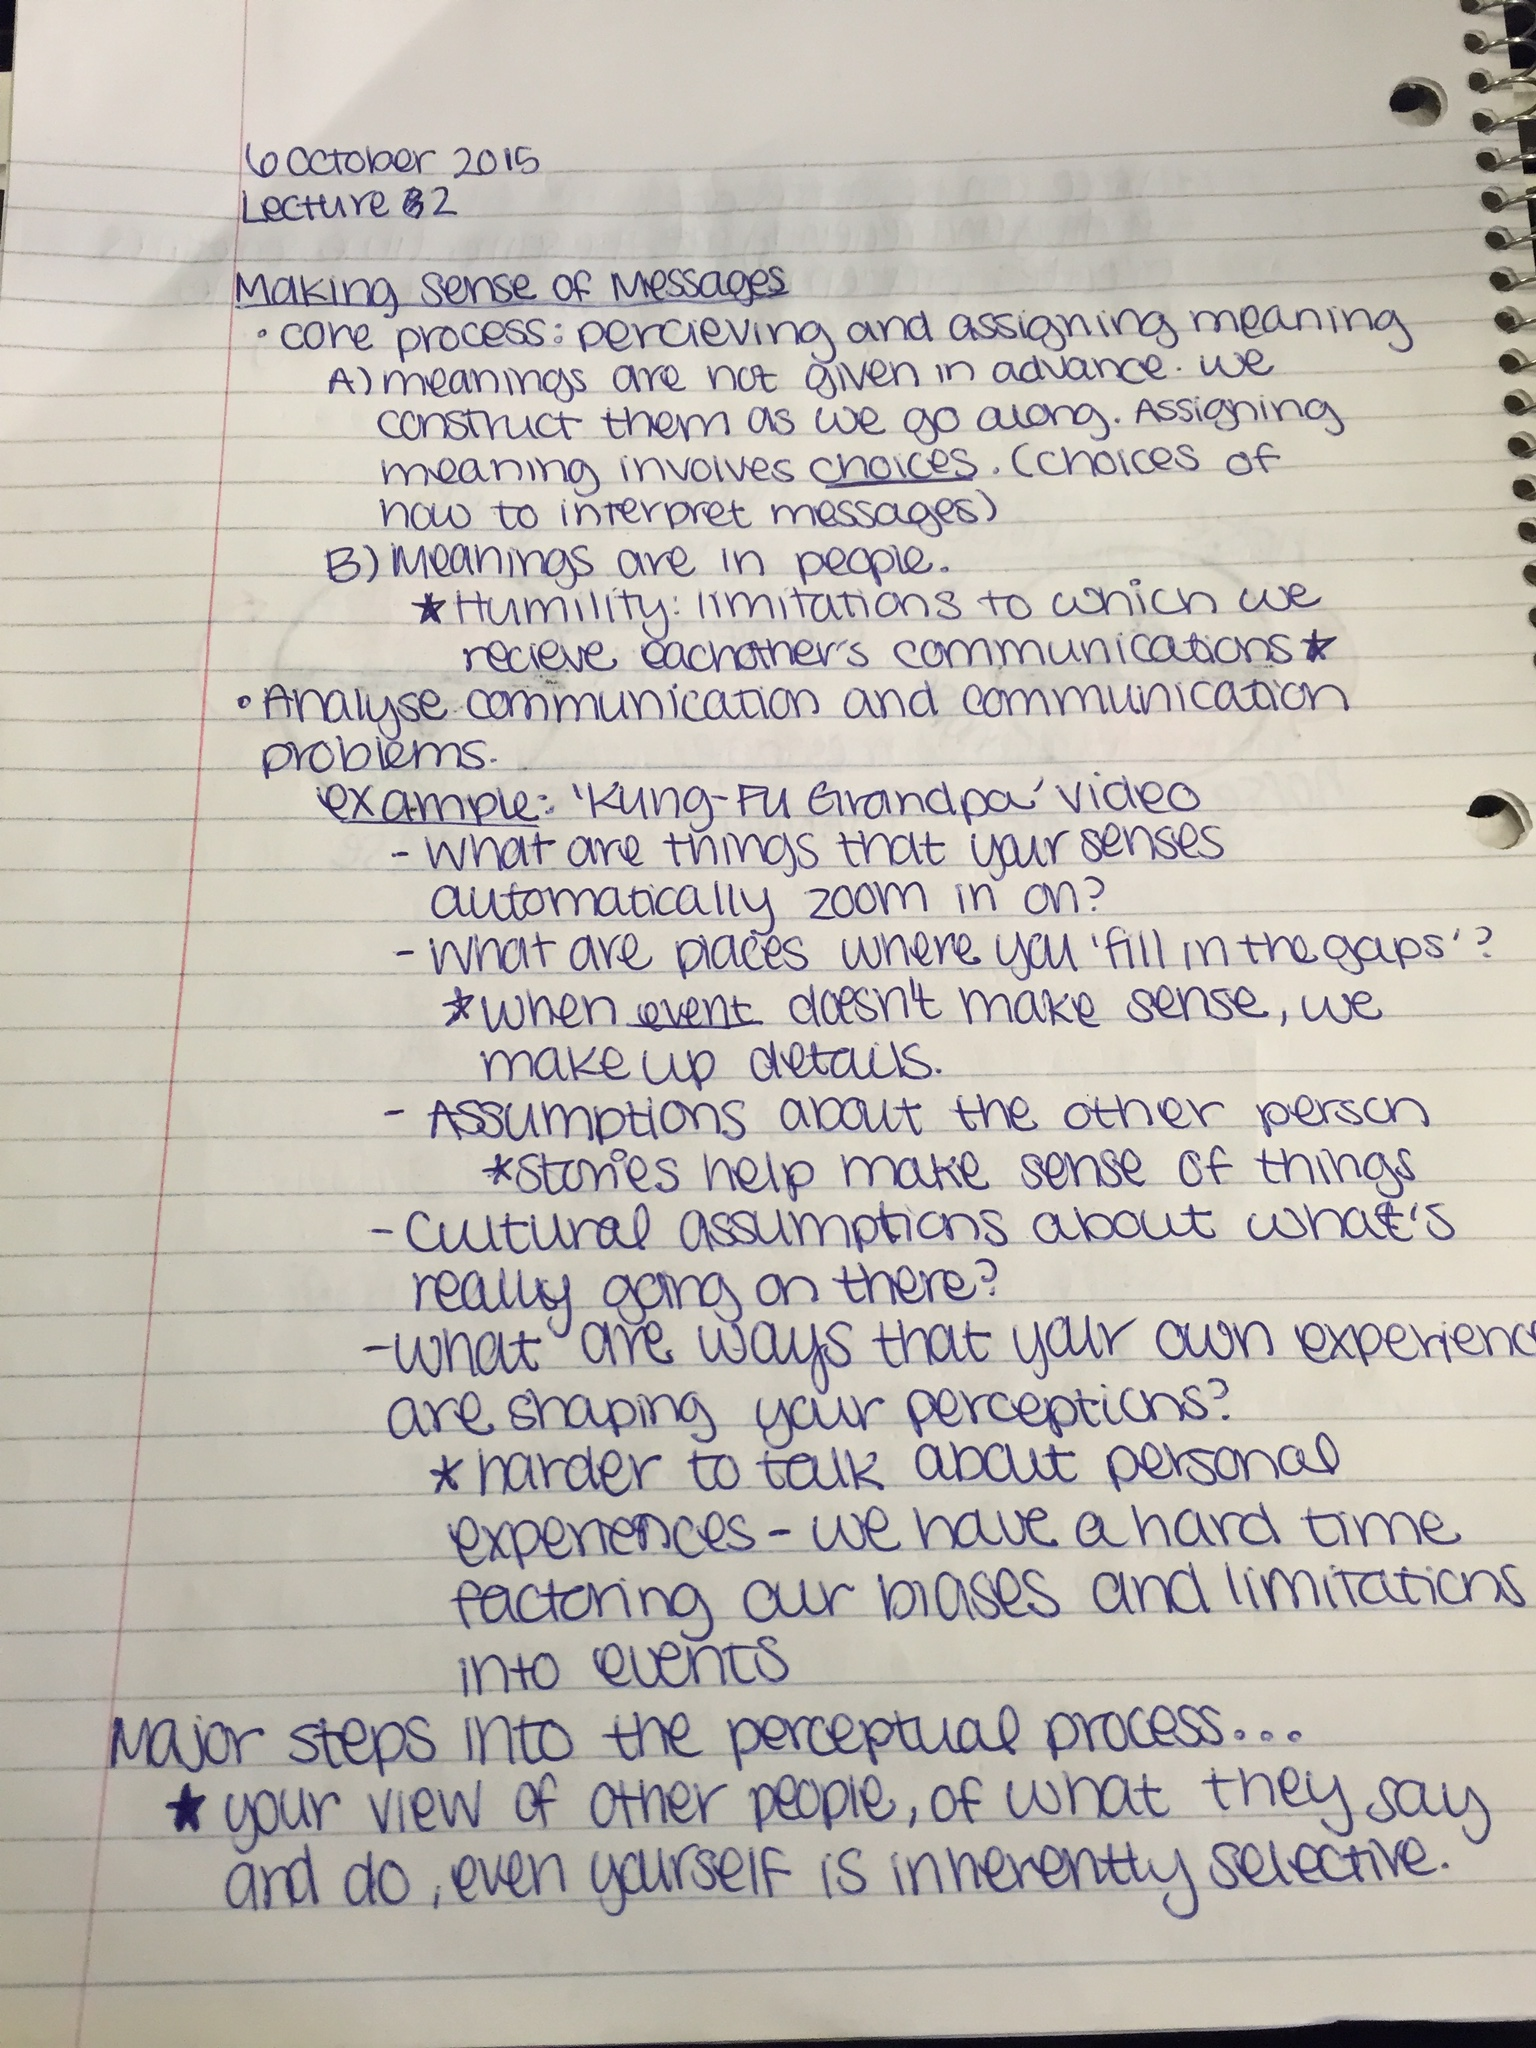 6 October 2015
Lecture 2
Making Sense of Messages
• core process: percieving and assigning meaning
A) meanings are not given in advance. we
construct them as we go along. Assigning
meaning involves choices. (choices of
how to interpret messages)
B) Meanings are in people.
★ Humility: limitations to which we
recieve eachother's communications ★
• Analyse communication and communication
problems.
example: 'Kung-Fu Grandpa' video
- What are things that your senses
automatically zoom in on?
- What are places where you 'fill in the gaps'?
* when event doesn't make sense, we
make up details.
- Assumptions about the other person
* stories help make sense of things
- Cultural assumptions about what's
really going on there?
- What are ways that your own experienc
are shaping your perceptions?
* harder to talk about personal
experiences - we have a hard time
factoring our biases and limitations
into events
Major steps into the perceptual process...
★ your view of other people, of what they say
and do, even yourself is inherently selective.